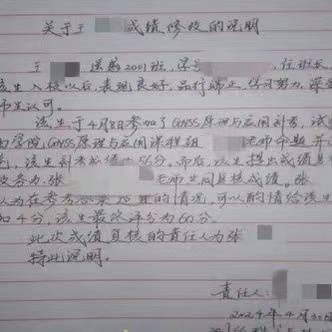 关于王 成绩修改的说明
王 ,遥感2001班,学号 ,任班长,
该生入校以后,表现良好,品行端正,学习努力,深
师生认可。
该生于4月8日参加了GNSS原理与应用补考,试
学院GNSS原理与应用课程组 老师命题并
,该生补考成绩 56分。而后,该生提出成绩复
教务办,张 老师 复核成绩。张
认为在参考 的情况,可以酌情给该生
加4分,该生最终评分为60分。
此次成绩复核的责任人为张
特此说明。
责任人:
2024年4月30日